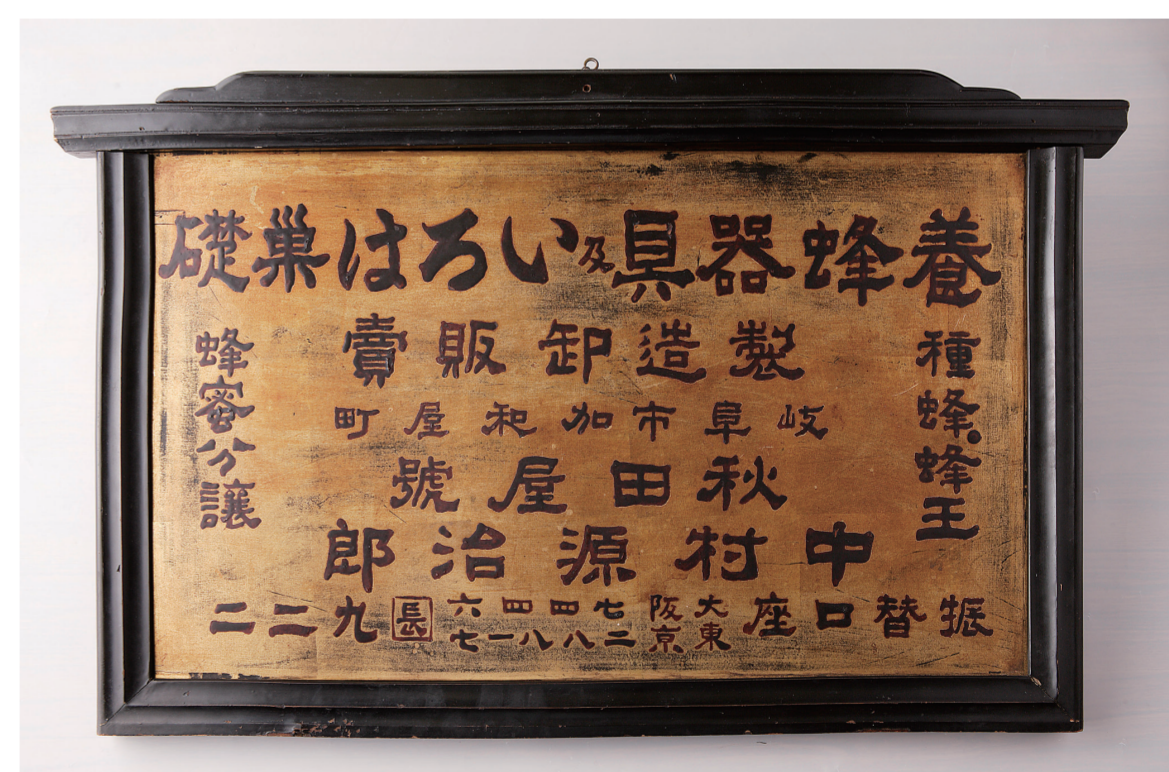 養蜂器具及いろは巣礎
種蜂・蜂王
製造卸販賣
岐阜市加和屋町
秋田屋號
中村源治郎
蜂蜜分讓
振替口座 大阪七四四六 東京二八八一七 長九二二